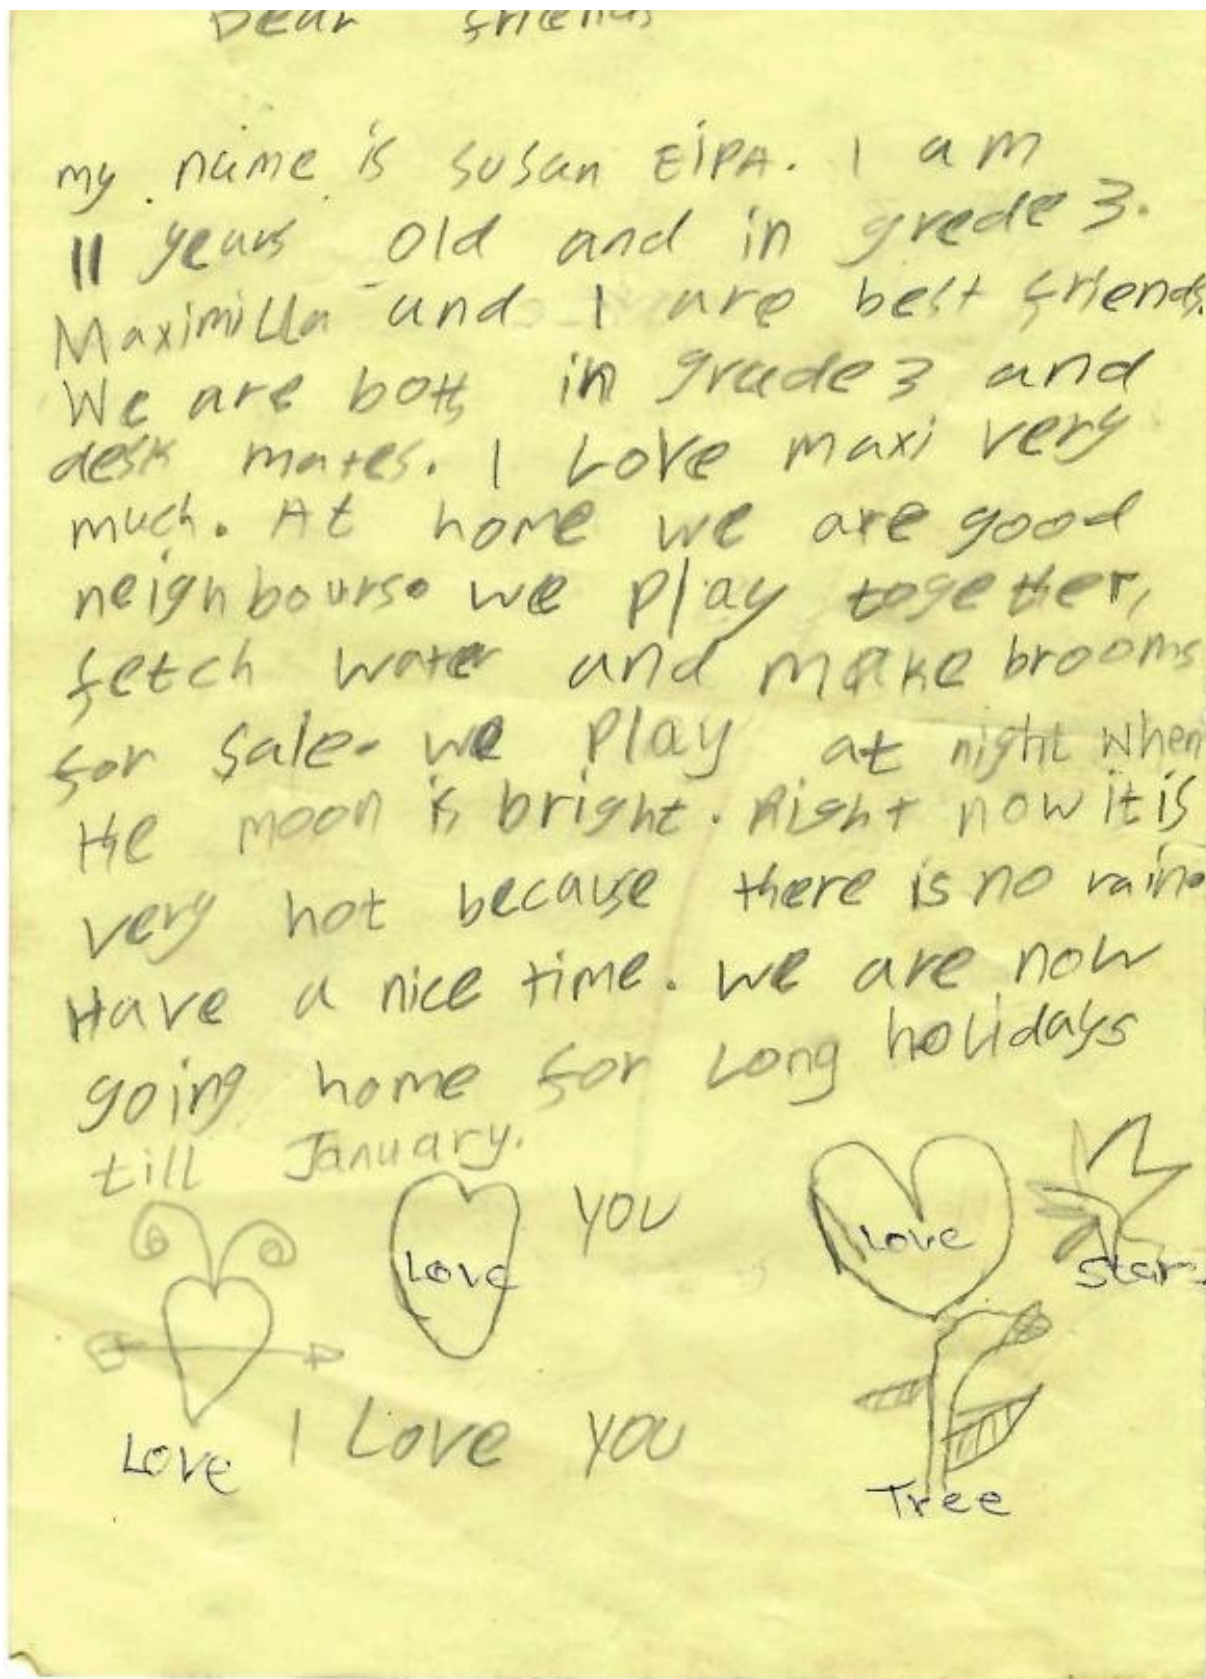 Dear friends
my name is susan EiPA. I am
11 years old and in grede 3.
Maximilla and I are best friends.
We are both in grade 3 and
desk mates. I Love maxi very
much. At home we are good
neighbours. we play together,
fetch water and make brooms
for sale. we play at night when
the moon is bright. Right now it is
very hot because there is no rain.
Have a nice time. we are now
going home for Long holidays
till January.
Love YOU
Love
Star
Love I Love YOU
Tree